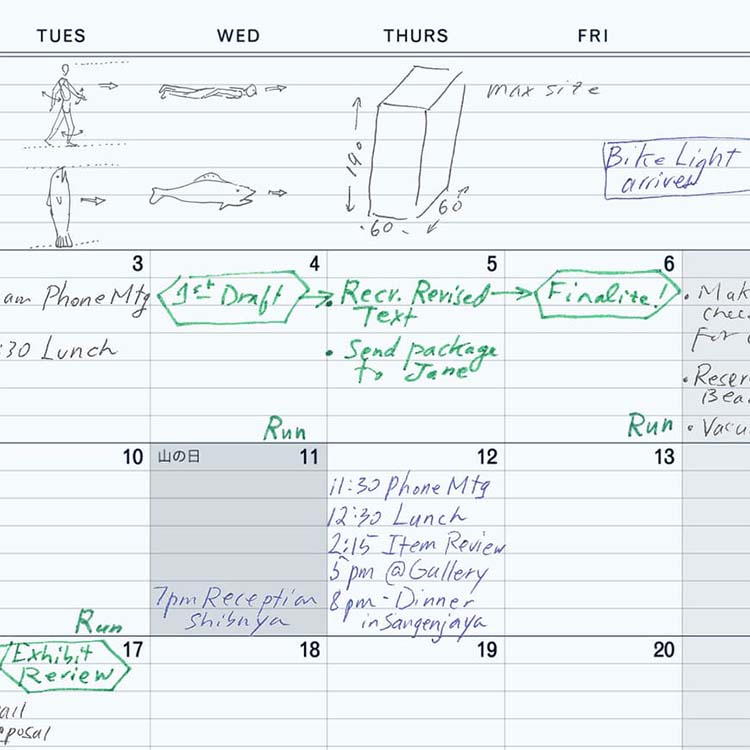 TUES
WED
THURS
FRI
max size
190
60
60
Bike Light
arrives
3
am Phone Mtg
:30 Lunch
4
1st Draft
Run
5
• Recv. Revised
Text
• Send package
to Jane
6
Finalize!
Run
• Mak
chec
For
• Reser
Bea
• Vacu
10
Run
山の日
11
7pm Reception
Shibuya
12
11:30 Phone Mtg
12:30 Lunch
2:15 Item Review
5pm @Gallery
8pm - Dinner
in Sangenjaya
13
17
Exhibit
Review
ail
posal
18
19
20